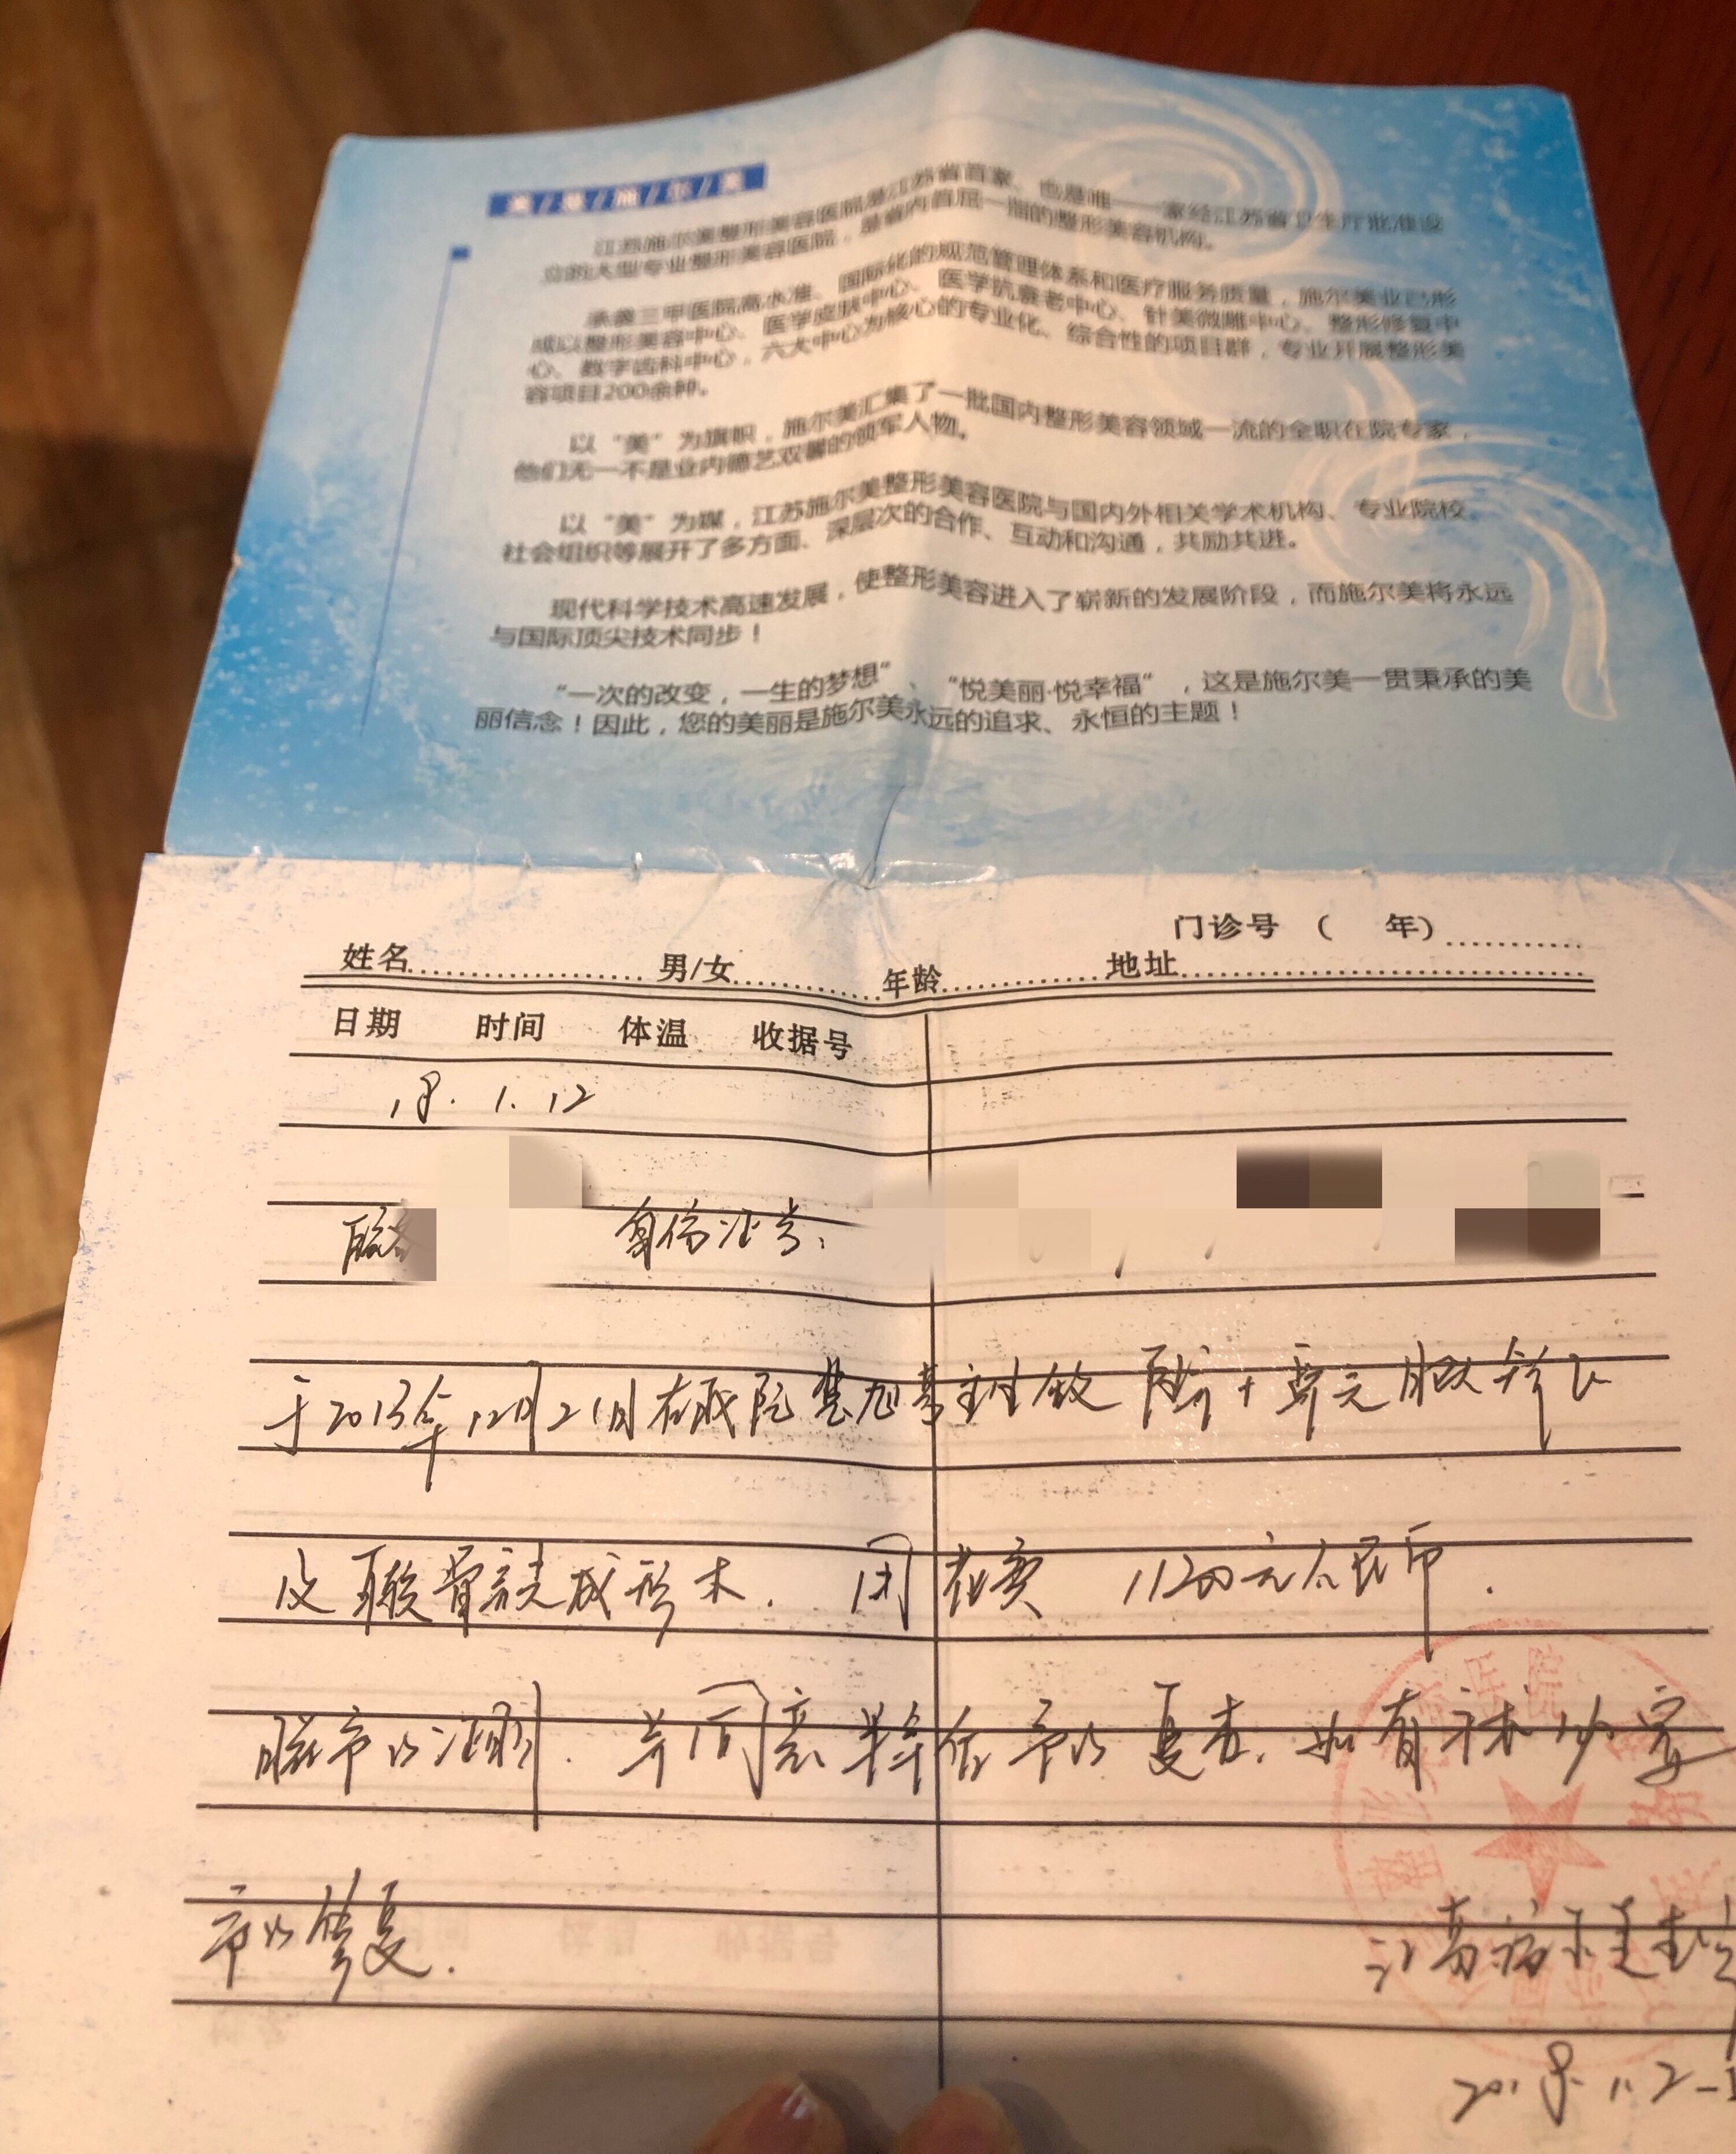 美/是/施/尔/美
江苏施尔美整形美容医院是江苏省首家、也是唯一一家经江苏省卫生厅批准设
立的大型专业整形美容医院，是省内首屈一指的整形美容机构。
承袭三甲医院高水准、国际化的规范管理体系和医疗服务质量，施尔美业已形
成以整形美容中心、医学皮肤中心、医学抗衰老中心、针美微雕中心、整形修复中
心、数字齿科中心，六大中心为核心的专业化、综合性的项目群，专业开展整形美
容项目200余种。
以“美”为旗帜，施尔美汇集了一批国内整形美容领域一流的全职在院专家，
他们无一不是业内德艺双馨的领军人物。
以“美”为媒，江苏施尔美整形美容医院与国内外相关学术机构、专业院校、
社会组织等展开了多方面、深层次的合作、互动和沟通，共励共进。
现代科学技术高速发展，使整形美容进入了崭新的发展阶段，而施尔美将永远
与国际顶尖技术同步！
“一次的改变，一生的梦想”、“悦美丽·悦幸福”，这是施尔美一贯秉承的美
丽信念！因此，您的美丽是施尔美永远的追求、永恒的主题！
门诊号 （ 年）
姓名 男/女 年龄 地址
日期 时间 体温 收据号
18. 1. 12
顾客 身份证号：
于2013年12月21日在我院 主任做
及 成形术. 共花费 11200元人民币.
特此证明. 并同意 给予以复查. 如有
予以修复.
2018.1.2